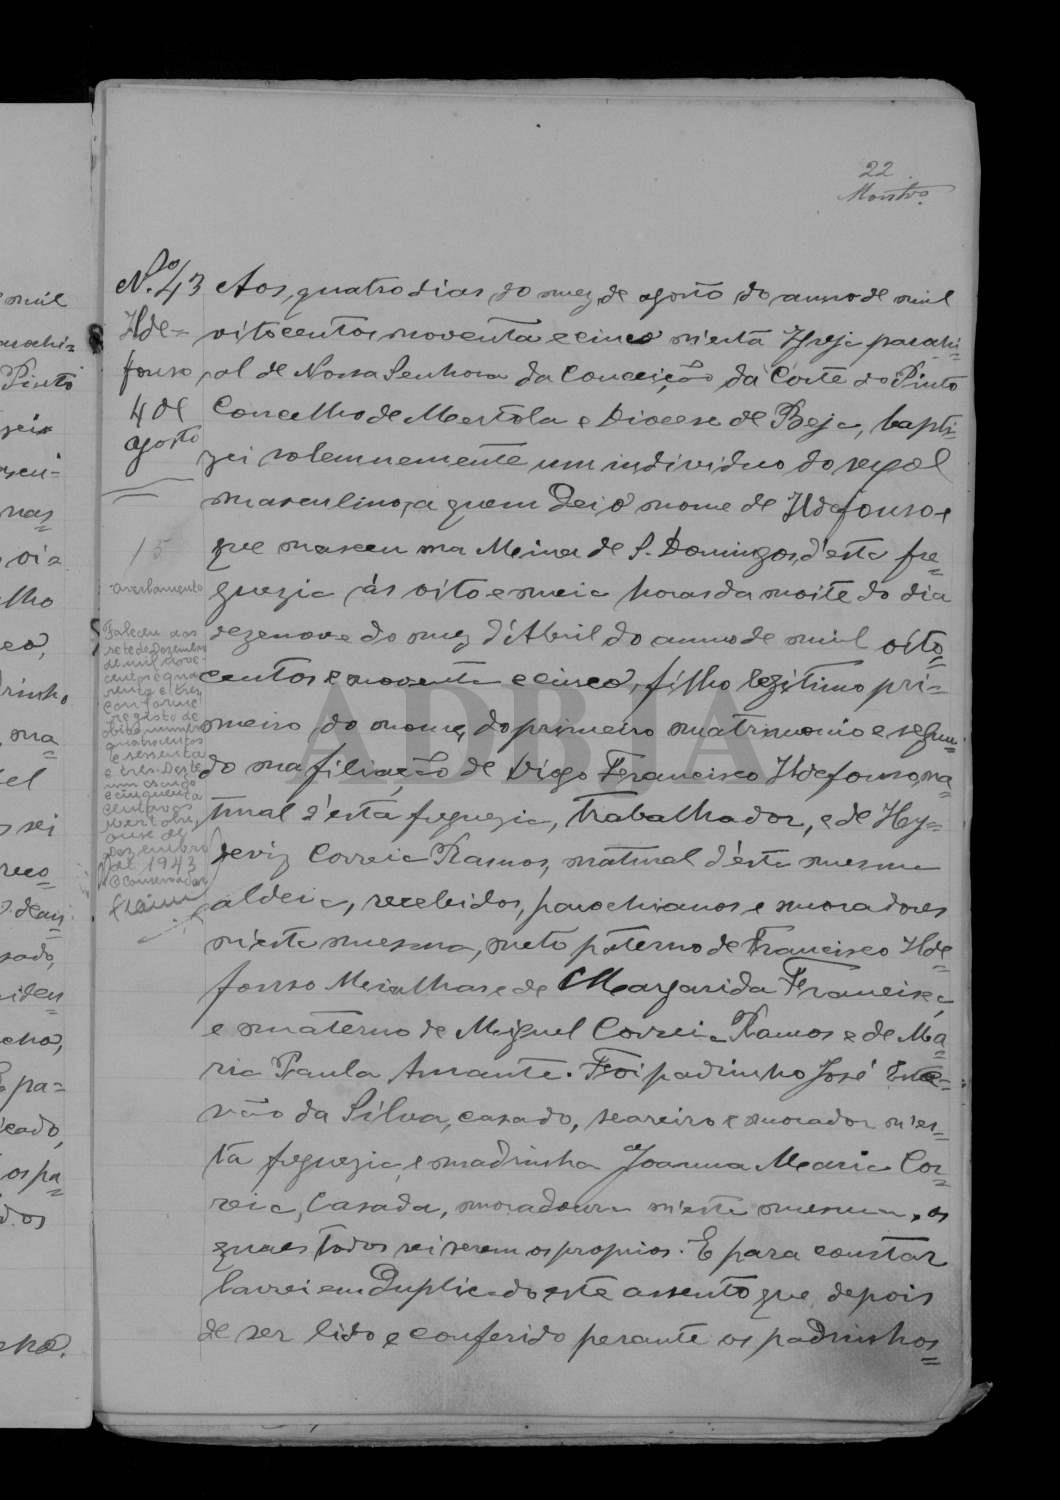 22
N.º 43
Ilde=
fonso
4 de
Agosto
Aos quatro dias do mez de agosto do anno de mil
oitocentos noventa e cinco n'esta Igreja parochi=
al de Nossa Senhora da Conceição da Corte do Pinto
Concelho de Mertola e Diocese de Beja, bapti=
zei solemnemente um individuo do sexo
masculino, a quem dei o nome de Ildefonso e
que nasceu na Mina de S. Domingos, d'esta fre=
guezia ás oito e meia horas da noite do dia
dezenove do mez d'Abril do anno de mil oito=
centos e noventa e cinco, filho legitimo pri=
meiro do nome, do primeiro matrimonio e segun=
do na filiação de Diogo Francisco Ildefonso, na=
tural d'esta freguezia, trabalhador, e de He=
deviz Correia Ramos, natural d'esta mesma
aldeia, recebidos, parochianos e moradores
n'esta mesma, neto paterno de Francisco Ilde=
fonso e de Margarida Francisca,
e materno de Miguel Correia Ramos e de Ma=
ria Paula Amante. Foi padrinho José
da Silva, casado, seareiro e morador n'es=
ta freguezia, e madrinha Joanna Maria Cor=
reia, casada, moradora n'esta mesma, os
quaes todos sei serem os proprios. E para constar
lavrei em duplicado este assento que depois
de ser lido e conferido perante os padrinhos=
15
averbamento
Faleceu aos
sete de Dezembro
de mil nove-
centos e qua
renta e tres
conforme
registo de
obito numero
quatrocentos
e sessenta
e tres. Deste
um escudo
e cinquenta
centavos
Mertola,
onze de
Dezembro
de 1943
O Conservador
mil
Pinto
ma=
el
pa=
cado,
os pa=
ADBJA